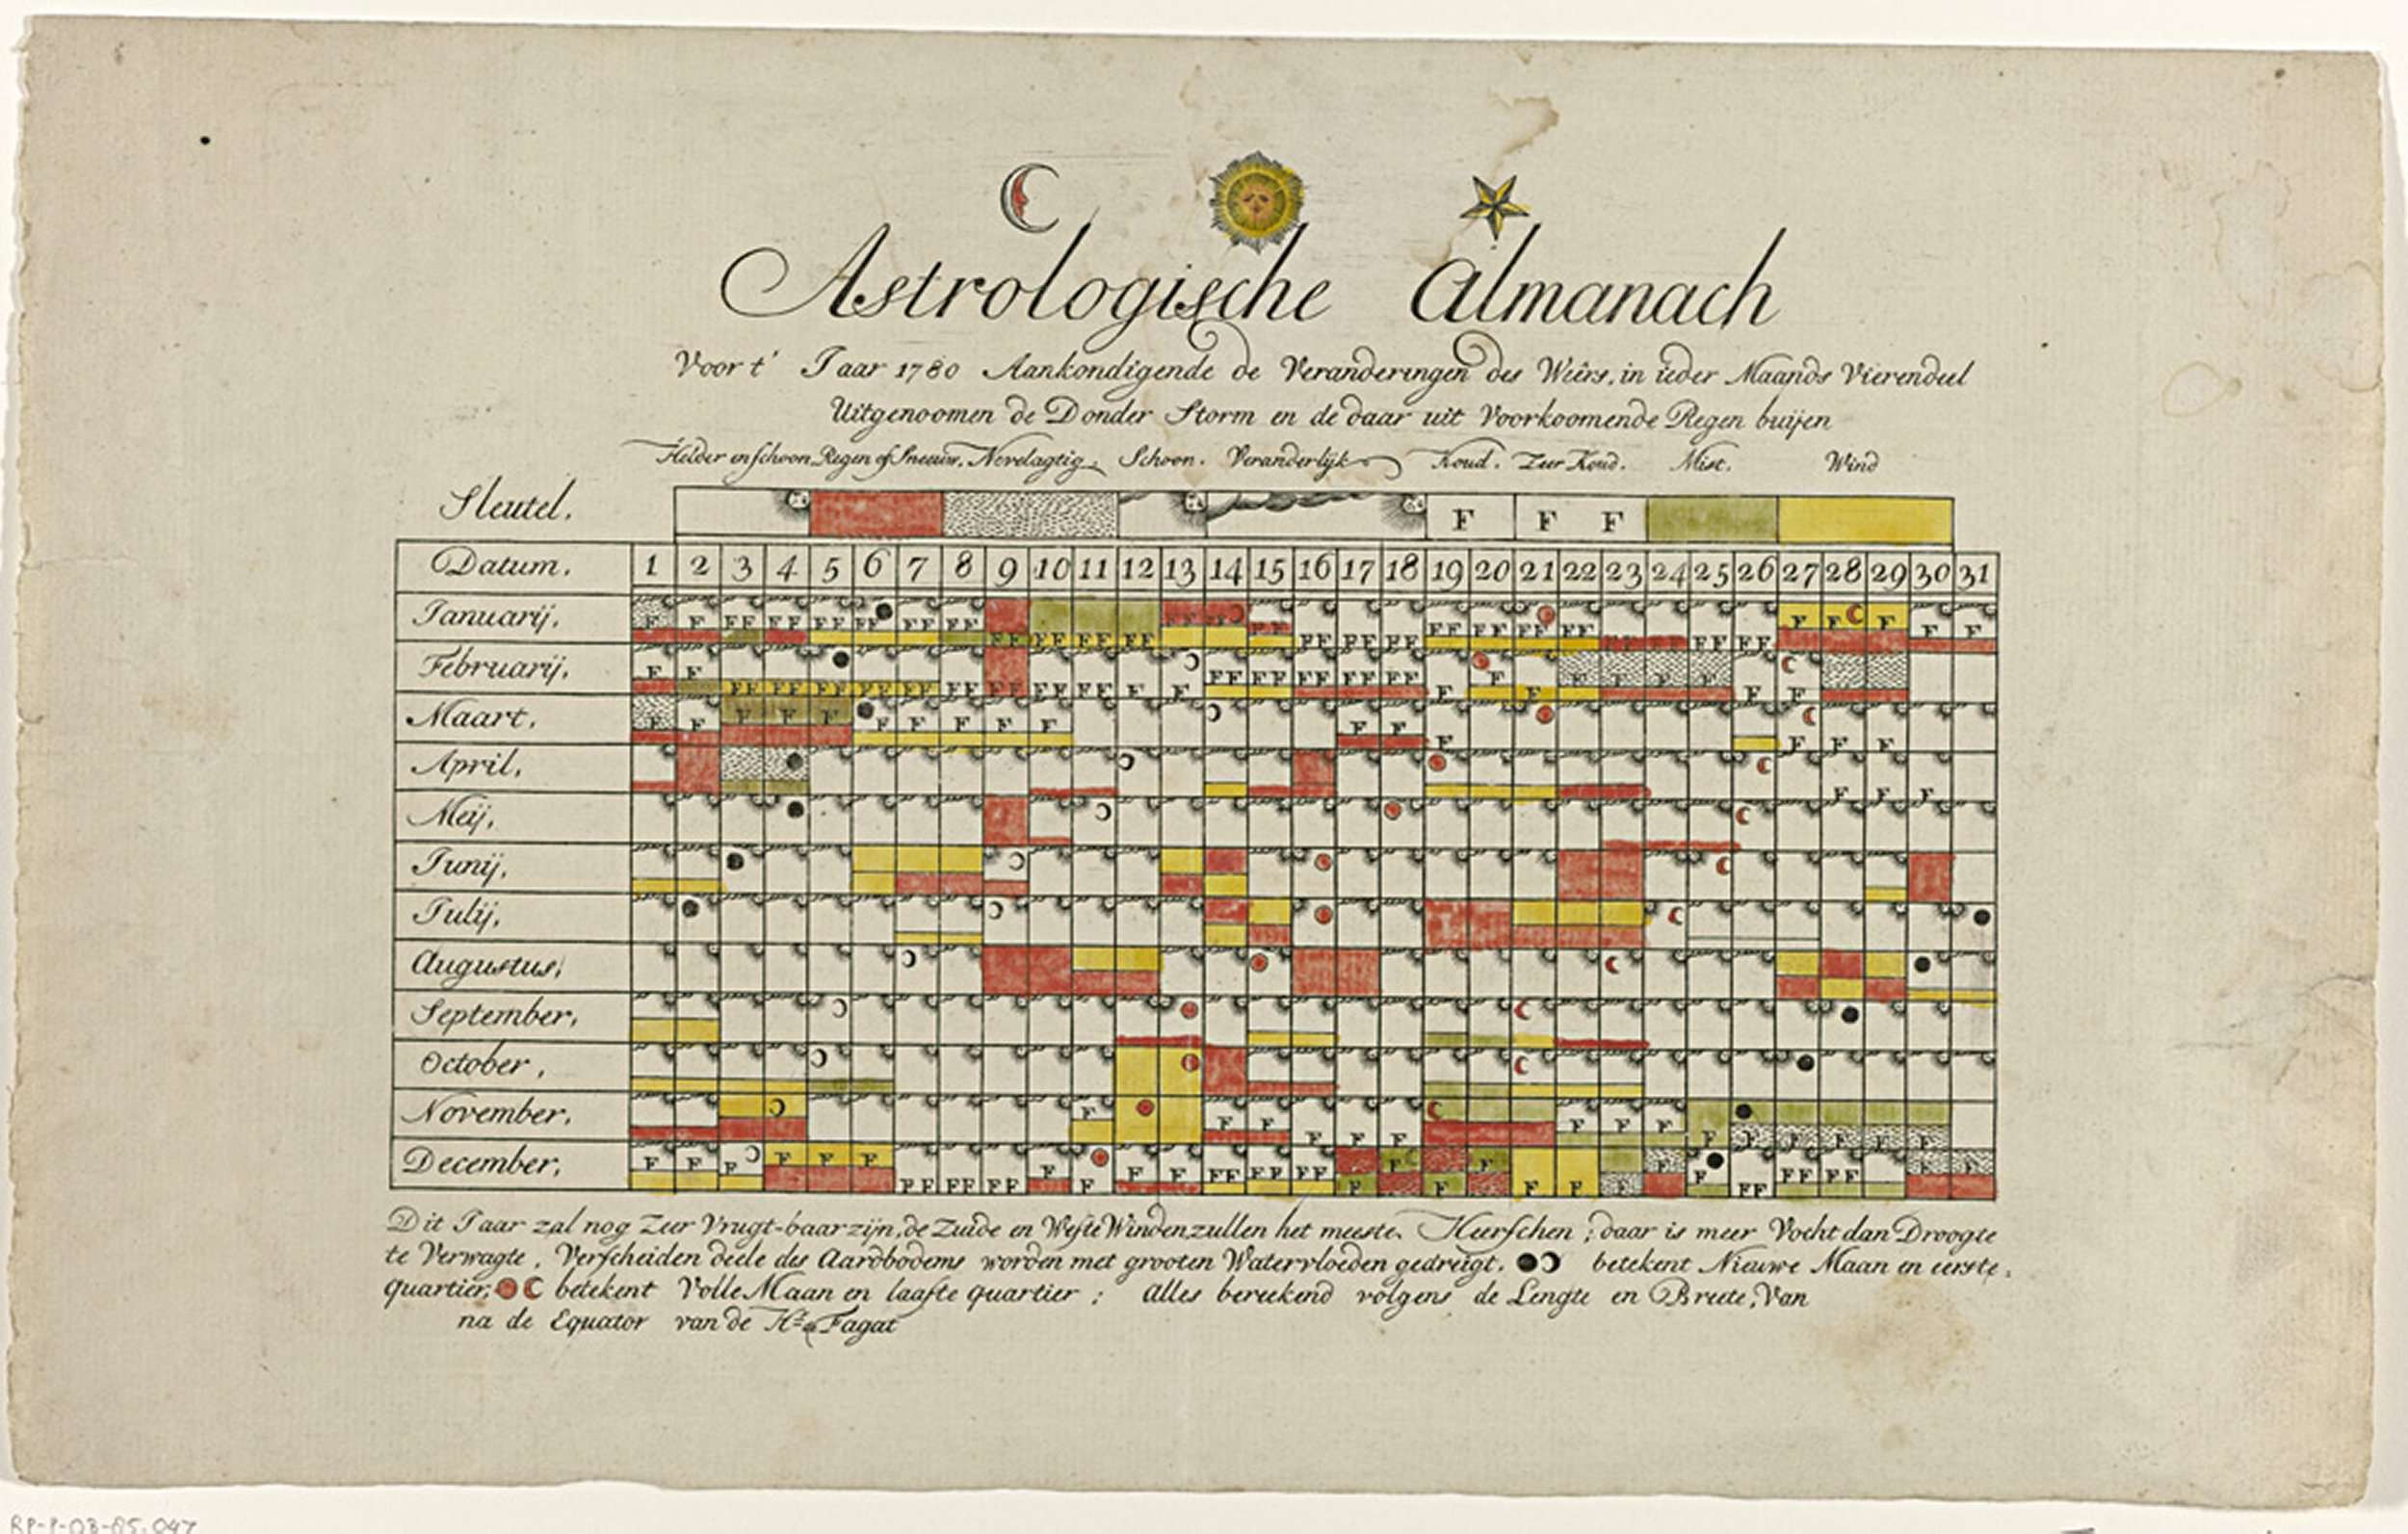 Astrologische Almanach
Voor t' Jaar 1780 Aankondigende de Veranderingen des Weêrs, in ieder Maands Vierendeel
Uitgenoomen de Donder Storm en de daar uit Voorkoomende Regen buijen
Helder en schoon. Regen of Sneeuw. Nevelagtig. Schoon. Veranderlijk. Koud. Zeer Koud. Mist. Wind
Sleutel. F F F
Datum. 1 2 3 4 5 6 7 8 9 10 11 12 13 14 15 16 17 18 19 20 21 22 23 24 25 26 27 28 29 30 31
Januarij,
Februarij,
Maart,
April,
Meij,
Junij,
Julij,
Augustus,
September,
October,
November,
December,
Dit Jaar zal nog Zeer Vrugt-baar zijn, de Zuide en Weste Winden zullen het meeste Heerschen ; daar is meer Vocht dan Droogte
te Verwagte, Verscheiden deele des Aardbodems worden met grooten Watervloeden gedreigt. betekent Nieuwe Maan en eerste
quartier, betekent Volle Maan en laaste quartier ; Alles bereekend volgens de Lengte en Breete, Van
na de Equator van de Fagat
RP-P-OB-85.047